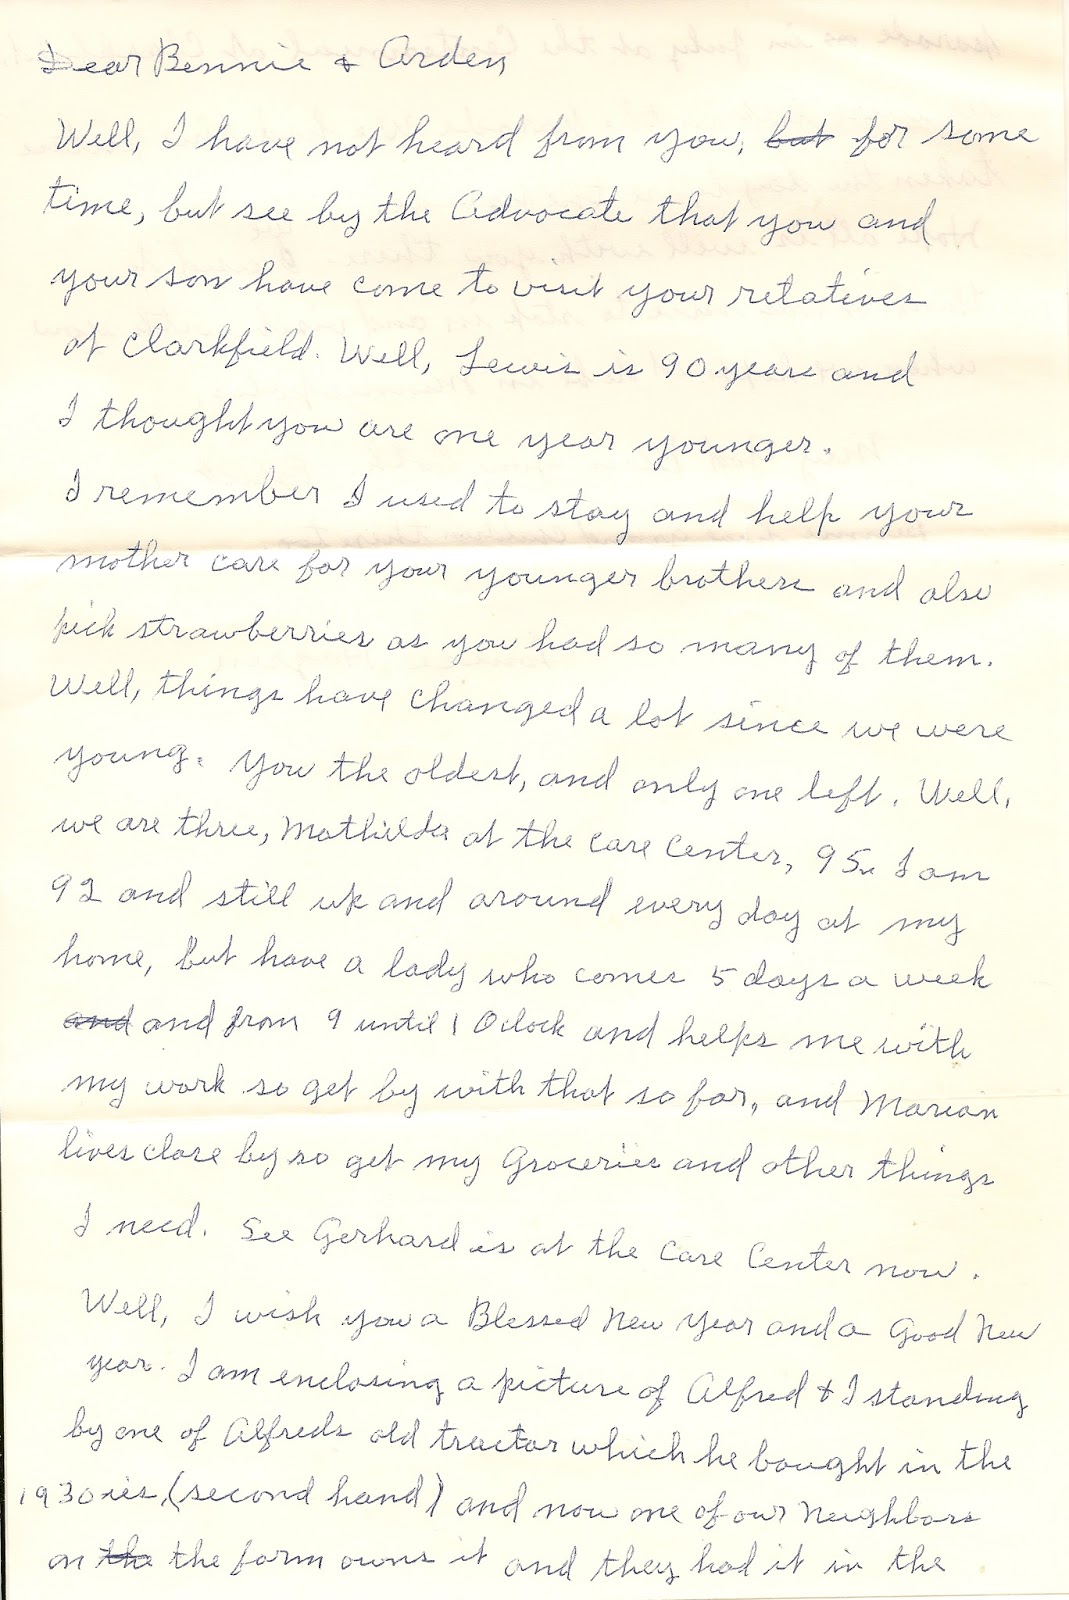 Dear Bennie & Arden
Well, I have not heard from you, but for some
time, but see by the Advocate that you and
your son have come to visit your relatives
at Clarkfield. Well, Lewis is 90 years and
I thought you are one year younger.
I remember I used to stay and help your
mother care for your younger brothers and also
pick strawberries as you had so many of them.
Well, things have changed a lot since we were
young. You the oldest, and only one left. Well,
we are three, Mathilda at the Care Center, 95. I am
92 and still up and around every day at my
home, but have a lady who comes 5 days a week
and and from 9 until 1 Oclock and helps me with
my work so get by with that so far, and Marian
lives close by so get my Groceries and other things
I need. See Gerhard is at the Care Center now.
Well, I wish you a Blessed New Year and a Good New
year. I am enclosing a picture of Alfred & I standing
by one of Alfreds old tractor which he bought in the
1930ies, (second hand) and now one of our Neighbors
on the the farm owns it and they had it in the